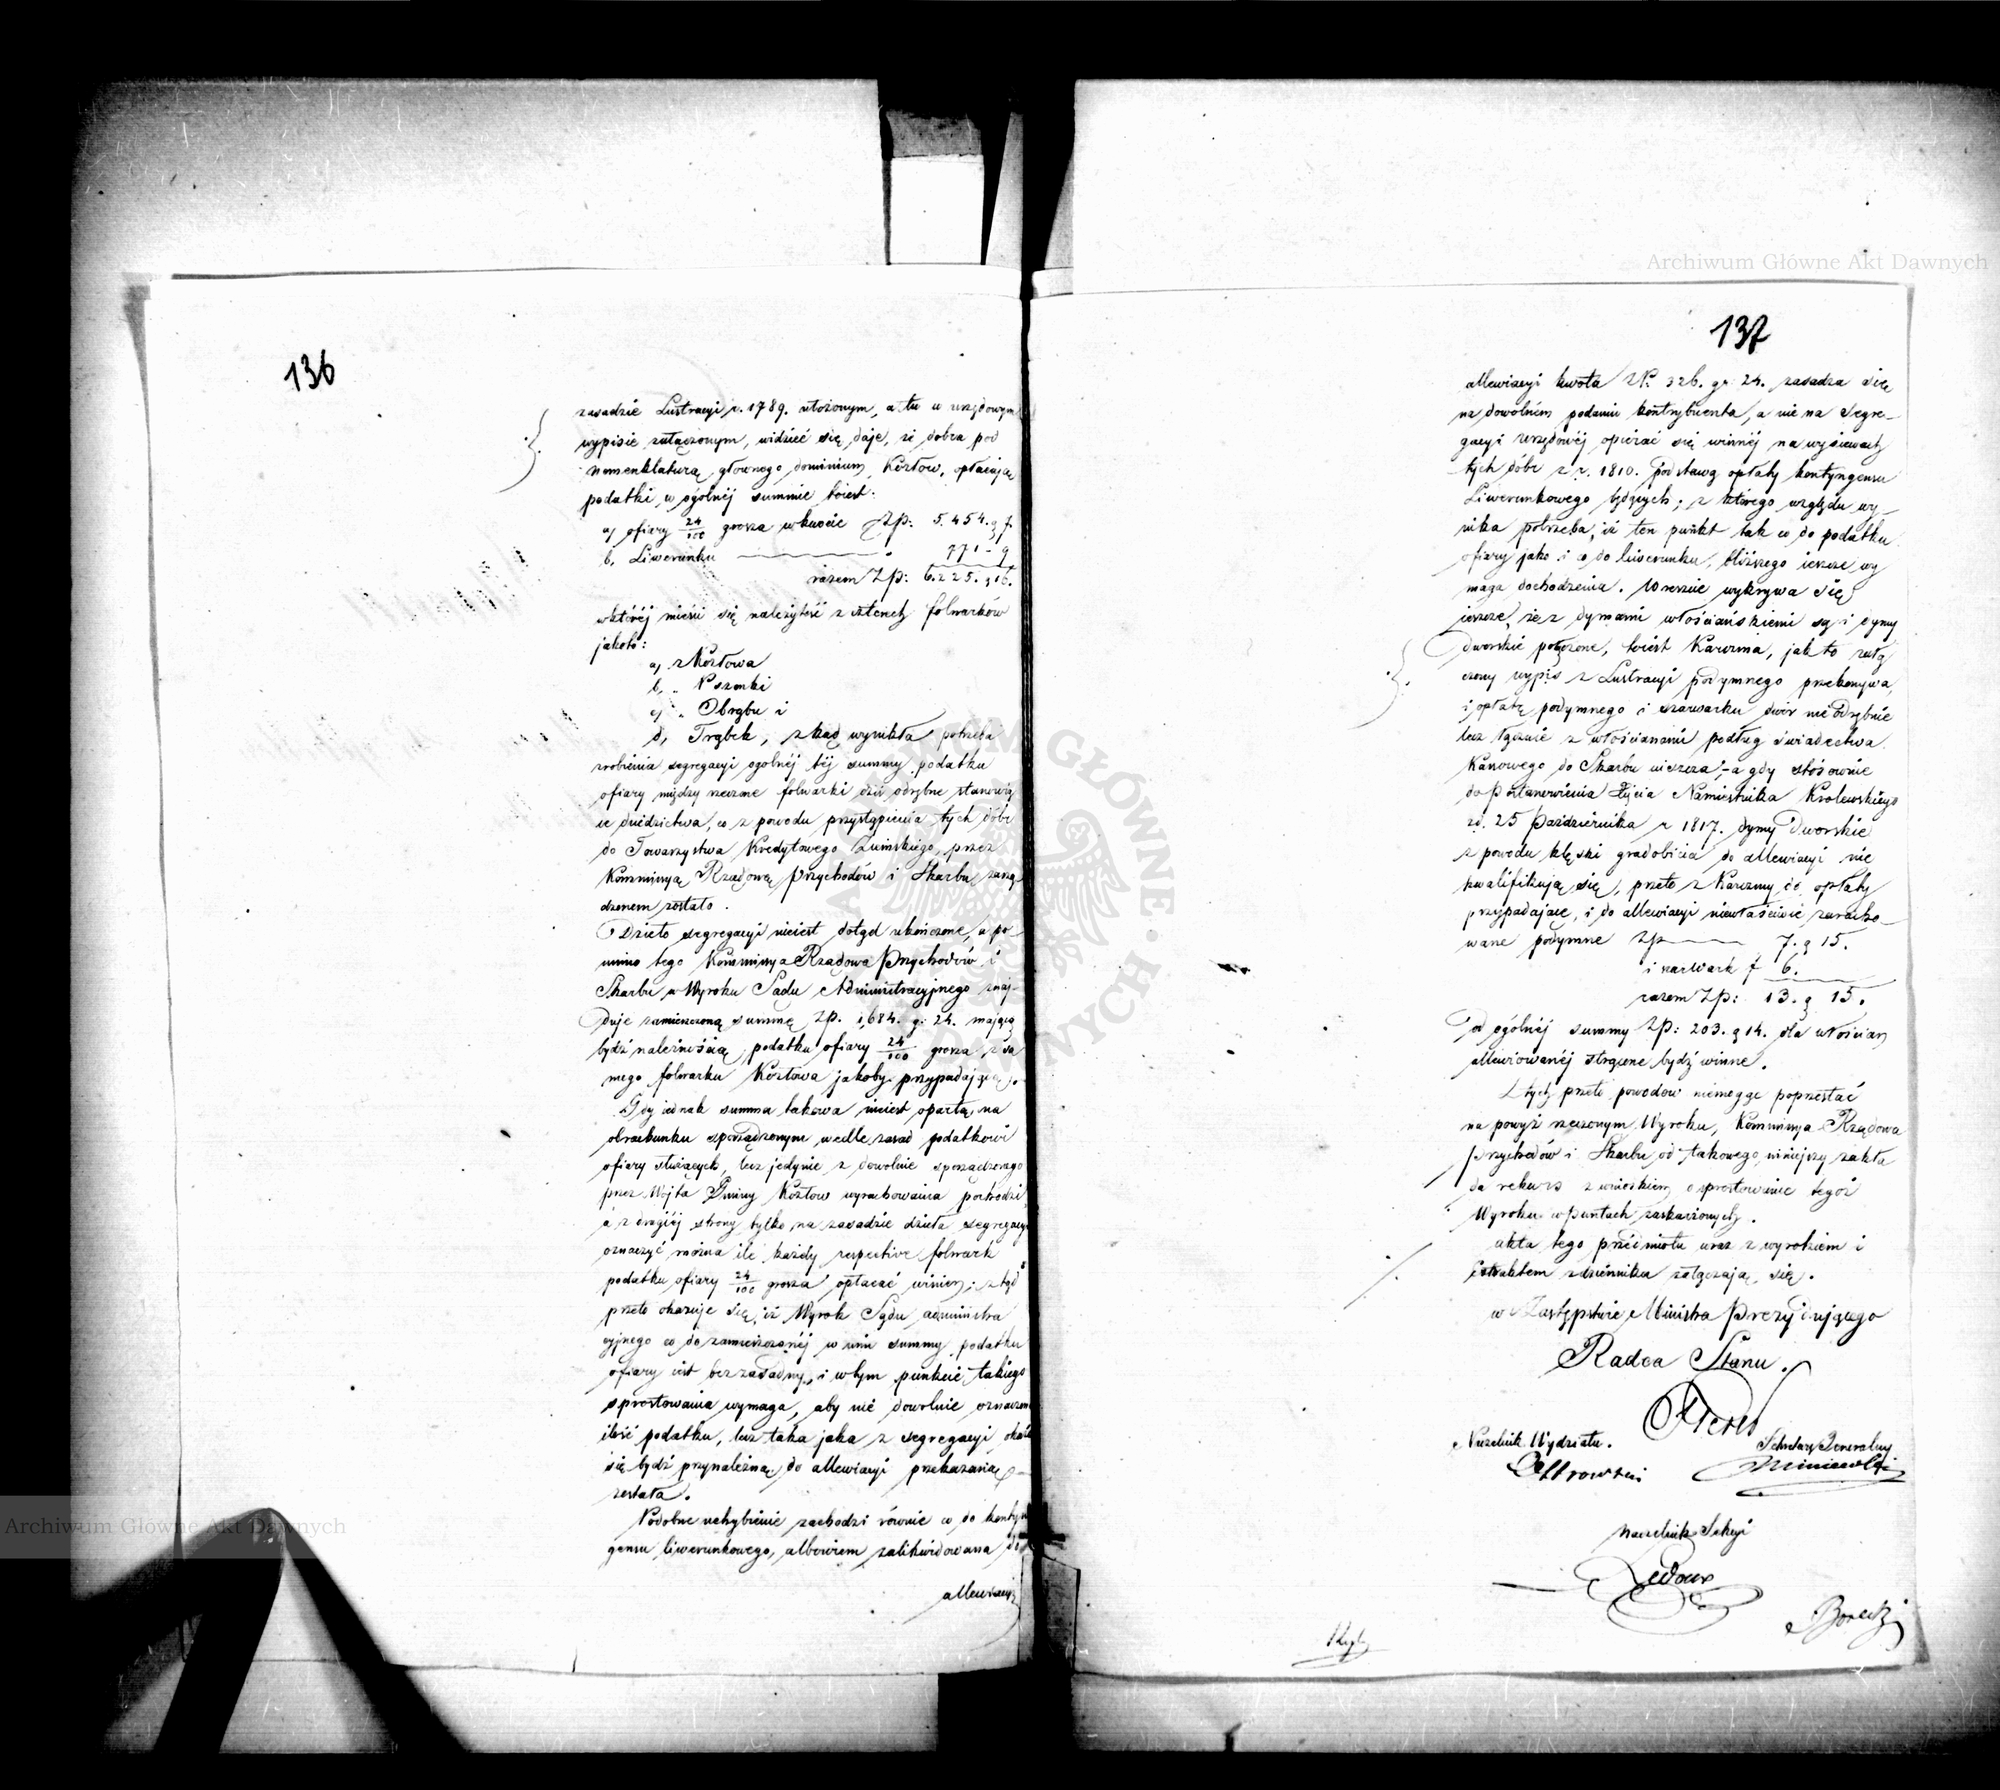 136
zasadzie Lustracyi r. 1789. ułożonym, a tu w urzędowym
wypisie załączonym, widzieć się daje, że dobra pod
nomenklaturą głownego dominium Kozłow, opłacają
podatki w ogólnéj summie toiest:
a, ofiary 24/100 grosza wkwocie Zp: 5.454. g 7.
b, Liwerunku „ 771 - 9
razem Zp: 6.225. g 16.
wktóréj mieści się należytość z czterech folwarków
jakoto:
a, z Kozłowa
b, „ Pszonki
c, „ Obrębu i
d, Trąbek, zkąd wynikła potrzeba
zrobienia segregacyi ogolnéj téj summy podatku
ofiary między rzeczone folwarki dziś odrębne stanowią
ce dziedzictwa, co z powodu przystąpienia tych dóbr
do Towarzystwa Kredytowego Ziemskiego, przez
Kommissyą Rządową Przychodów i Skarbu zarzą
dzonem zostało.
Dzieło segregacyi nieiest dotąd ukończone, a po
mimo tego Kommissya Rządowa Przychodów i
Skarbu w Wyroku Sądu Administracyjnego znaj-
duje zamieszczoną summę Zp. 1,684. g: 24. mającą
bydź należnością podatku ofiary 24/100 grosza z sa
mego folwarku Kozłowa jakoby przypadającą.
Gdy iednak summa takowa nieiest opartą na
obrachunku sporządzonym wedle zasad podatkowi
ofiary służących, lecz jedynie z dowolnie sporządzonego
przez Wójta Gminy Kozłow wyrachowania pochodzi,
a z drugiéj strony tylko na zasadzie dzieła segregacyi
oznaczyć można ile każdy respective folwark
podatku ofiary 24/100 grosza opłacać winien; ztąd
przeto okazuje się, iż Wyrok Sądu administra
cyjnego co do zamieszczonéj w nim summy podatku
ofiary iest bezzasadny, i wtym punkcie takiego
sprostowania wymaga, aby nie dowolnie oznaczon
ilość podatku, lecz taka jaka z segregacyi okaże
się bydź przynależną do allewiacyi przekazaną
została.
Podobne uchybienie zachodzi równie co do kontyn
gensu liwerunkowego, albowiem zalikwidowana do
allewiacyi
137
allewiacyi kwota Zł: 326. gr: 24. zasadza się
na dowolném podaniu kontrybuenta, a nie na Segre-
gacyi urzędowéj opierać się winnéj na wysiewach
tych dóbr z r. 1810. podstawą opłaty kontyngensu
Liwerunkowego będących; z którego względu wy-
nika potrzeba, iż ten punkt tak co do podatku
ofiary jako i co do liwerunku, bliższego ieszcze wy
maga dochodzenia. Wreszcie wykrywa się
ieszcze, że z dymami włościańskiemi są i dymy
dworskie połączone, toiest Karczma, jak to załą
czony wypis z Lustracyi podymnego przekonywa,
i opłatę podymnego i szarwarku dwór nie odrębnie
lecz łącznie z włościanami podług świadectwa
Kassowego do Skarbu uiszcza; - a gdy stósownie
do Postanowienia Xięcia Namiestnika Królewskiego
zd. 25 Października r 1817. dymy Dworskie
z powodu klęski gradobicia do allewiacyi nie
kwalifikują się, przeto z Karczmy do opłaty
przypadające, i do allewiacyi niewłaściwie zaracho-
wane podymne Zp 7. g 15.
i szarwark f 6.
razem Zp: 13. g 15.
od ogólnéj summy Zp: 203. g 14. dla włościan
allewiowanéj strącone bydź winne.
Z tych przeto powodów niemogąc poprzestać
na powyż rzeczonym Wyroku, Kommissya Rządowa
Przychodów i Skarbu od takowego niniejszy zakła
da rekurs z wnioskiem o sprostowanie tegoż
Wyroku w punktach zaskarżonych.
akta tego przedmiotu wraz z wyrokiem i
Extraktem zdziennika załączają się.
w Zastępstwie Ministra Prezydującego
Radca Stanu.
Naczelnik Wydziału.
Sekretarz Generalny
Ostrowski
Naczelnik Sekcyi
Ledoux
Archiwum Główne Akt Dawnych
Archiwum Główne Akt Dawnych